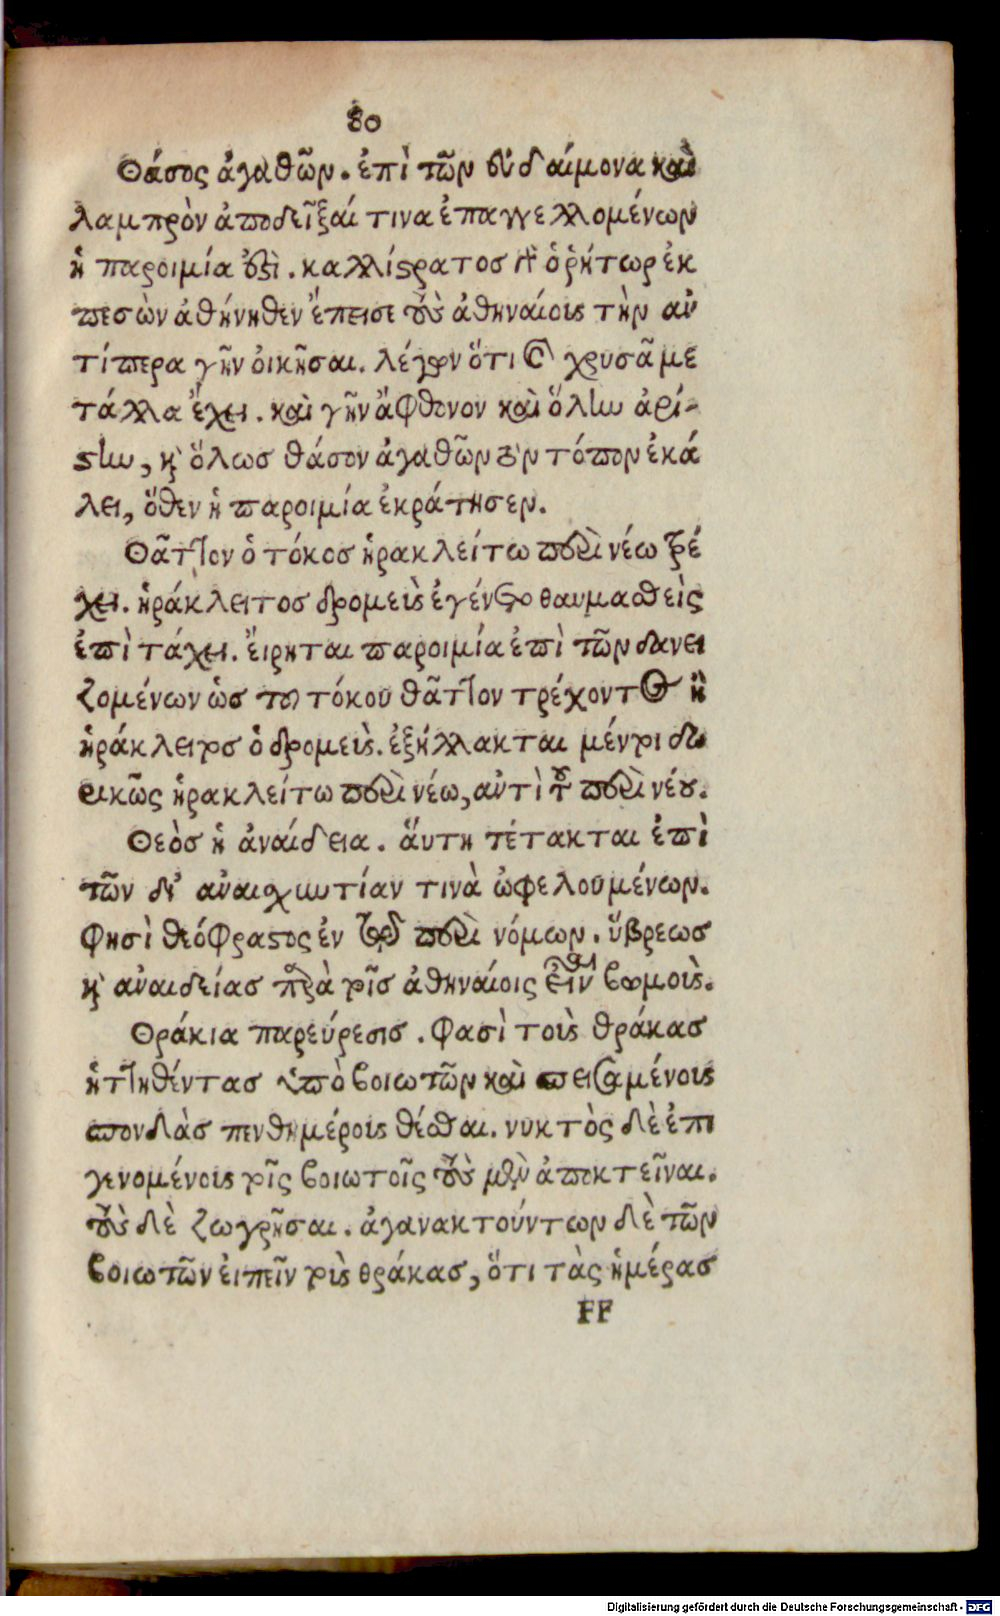 80
Θάσος ἀγαθῶν. ἐπὶ τῶν εὐδαίμονα καὶ
λαμπρὸν ἀποδεῖξαί τινα ἐπαγγελλομένων
ἡ παροιμία ἐστὶ. καλλίστρατοσ γὰρ ὁ ῥήτωρ ἐκ
πεσὼν ἀθήνηθεν ἔπεισε τοὺς ἀθηναίους τὴν ἀν
τίπερα γῆν ὀικῆσαι. λέγων ὅτι καὶ χρυσᾶ με
τάλλα ἔχει. καὶ γῆν ἄφθονον καὶ ὅλην ἀρί-
στην, καὶ ὅλωσ θάσον ἀγαθῶν τὸν τόπον ἐκά
λει, ὅθεν ἡ παροιμία ἐκράτησεν.
Θᾶττον ὁ τόκοσ ἡρακλείτω περινέω τρέ
χει. ἡράκλειτοσ δρομεὺς ἐγένετο θαυμασθεὶς
ἐπὶ τάχει. ἔιρηται παροιμία ἐπὶ τῶν δανει
ζομένων ὡσ τοῦ τόκου θᾶττον τρέχοντος ἢ
ἡράκλειτοσ ὁ δρομεὺς. ἐξήλλακται μέντοι δω
ρικῶς ἡρακλείτω περινέω, ἀντὶ τοῦ περινέου.
Θεὸσ ἡ ἀναίδεια. ἅυτη τέτακται ἐπὶ
τῶν δι' ἀναισχυντίαν τινὰ ὠφελουμένων.
Φησὶ θεόφραστος ἐν τῷ περὶ νόμων. ὕβρεωσ
καὶ ἀναιδείασ παρὰ τοῖσ ἀθηναίοις εἶναι βωμοὺς.
Θράκια παρεύρεσισ. Φασὶ τοὺς θράκασ
ἡττηθέντασ ὑπὸ βοιωτῶν καὶ σπεισαμένους
σπονδὰσ πενθημέρους θέσθαι. νυκτὸς δὲ ἐπι
γενομένους τοῖς βοιωτοῖς τοὺς μὲν ἀποκτεῖναι.
τοὺς δὲ ζωγρῆσαι. ἀγανακτούντων δὲ τῶν
βοιωτῶν ἐιπεῖν τοὺς θράκασ, ὅτι τὰς ἡμέρασ
FF
Digitalisierung gefördert durch die Deutsche Forschungsgemeinschaft - DFG